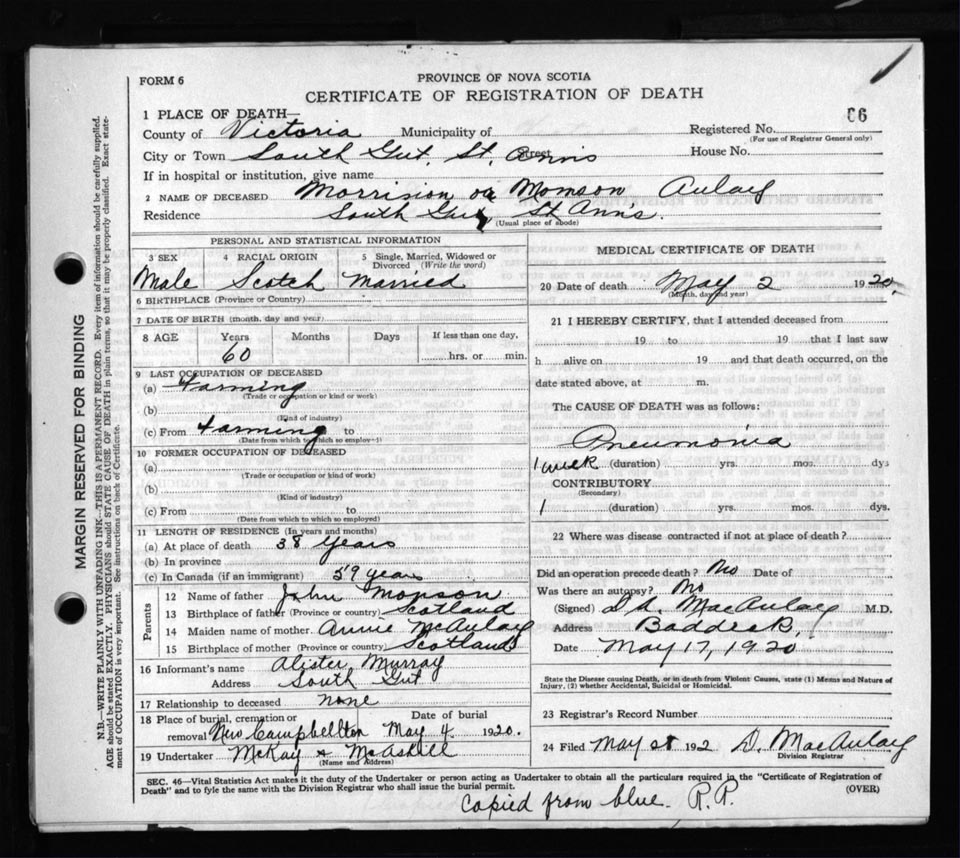 FORM 6
PROVINCE OF NOVA SCOTIA
CERTIFICATE OF REGISTRATION OF DEATH
66
1 PLACE OF DEATH—
County of Victoria Municipality of Registered No.
(For use of Registrar General only)
City or Town South Gut, St. Anns Street House No.
If in hospital or institution, give name
2 NAME OF DECEASED Morrision or Momson Aulay
Residence South Gut, St Anns.
(Usual place of abode)
PERSONAL AND STATISTICAL INFORMATION
3 SEX 4 RACIAL ORIGIN 5 Single, Married, Widowed or Divorced (Write the word)
Male Scotch Married
6 BIRTHPLACE (Province or Country)
7 DATE OF BIRTH (month, day and year)
8 AGE Years Months Days If less than one day,
60 hrs. or min.
9 LAST OCCUPATION OF DECEASED
(a) Farming
(Trade or occupation or kind or work)
(b)
(Kind of industry)
(c) From Farming to
(Date from which to which so employed)
10 FORMER OCCUPATION OF DECEASED
(a)
(Trade or occupation or kind of work)
(b)
(Kind of industry)
(c) From to
(Date from which to which so employed)
11 LENGTH OF RESIDENCE (In years and months)
(a) At place of death 38 years
(b) In province
(c) In Canada (if an immigrant) 59 years
Parents
12 Name of father John Mopson
13 Birthplace of father (Province or country) Scotland
14 Maiden name of mother Annie McAulay
15 Birthplace of mother (Province or country) Scotland
16 Informant's name Alister Murray
Address South Gut
17 Relationship to deceased none
18 Place of burial, cremation or Date of burial
removal New Campbellton May 4 1920.
19 Undertaker McKay & McAskill
(Name and Address)
MEDICAL CERTIFICATE OF DEATH
20 Date of death May 2 1920
(Month, day and year)
21 I HEREBY CERTIFY, that I attended deceased from
19 to 19 that I last saw
h alive on 19 and that death occurred, on the
date stated above, at m.
The CAUSE OF DEATH was as follows:
Pneumonia
1 week (duration) yrs. mos. dys
CONTRIBUTORY
(Secondary)
1 (duration) yrs. mos. dys.
22 Where was disease contracted if not at place of death?
Did an operation precede death? No Date of
Was there an autopsy? No
(Signed) D.A. MacAulay M.D.
Address Baddeck,
Date May 17, 1920
State the Disease causing Death, or in death from Violent Causes, state (1) Means and Nature of
Injury, (2) whether Accidental, Suicidal or Homicidal.
23 Registrar's Record Number
24 Filed May 28 192 D. MacAulay
Division Registrar
SEC. 46—Vital Statistics Act makes it the duty of the Undertaker or person acting as Undertaker to obtain all the particulars required in the "Certificate of Registration of
Death" and to fyle the same with the Division Registrar who shall issue the burial permit. (OVER)
Copied from blue. R.P.
MARGIN RESERVED FOR BINDING
N.B.—WRITE PLAINLY WITH UNFADING INK—THIS IS A PERMANENT RECORD. Every item of information should be carefully supplied.
AGE should be stated EXACTLY. PHYSICIANS should STATE CAUSE OF DEATH in plain terms, so that it may be properly classified. Exact state-
ment of OCCUPATION is very important. See instructions on back of Certificate.